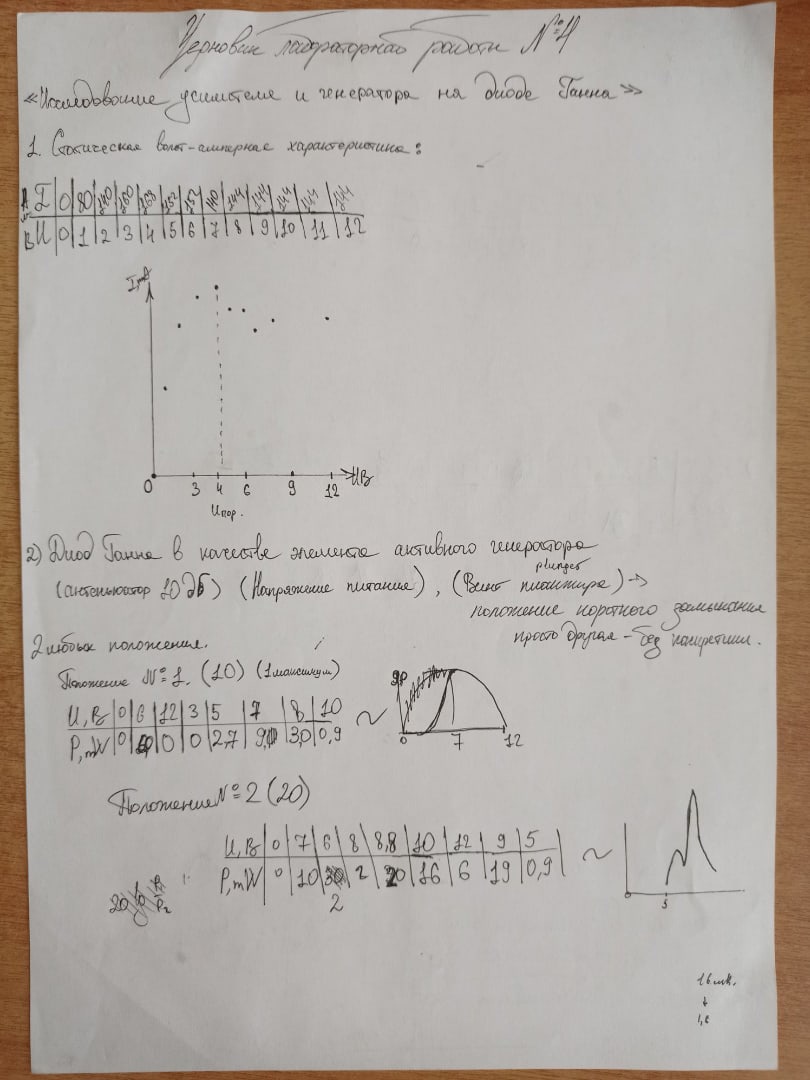 Черновик лабораторной работы №4
«Исследование усилителя и генератора на диоде Ганна»
1. Статическая вольт-амперная характеристика:
I 0 80 140 160 163 152 152 140 144 144 144 144 144
В U 0 1 2 3 4 5 6 7 8 9 10 11 12
I, mA
0 3 4 6 9 12 U В
Uпор.
2) Диод Ганна в качестве элемента активного генератора
plunger
(антеньюатор 10 дБ) (Напряжение питание), (Винт плонжира) →
положение короткого замыкания
просто другая – без конкретики.
2 любых положения.
Положение № 1. (10) (1 максимум)
U, В 0 6 12 3 5 7 8 10
P, mW 0 0 0 2,7 3,0 0,9
~
0 7 12
Положение № 2 (20)
U, В 0 7 6 8 8,8 10 12 9 5
P, mW 0 10 2 20 16 6 19 0,9
2
~
5
20
↓